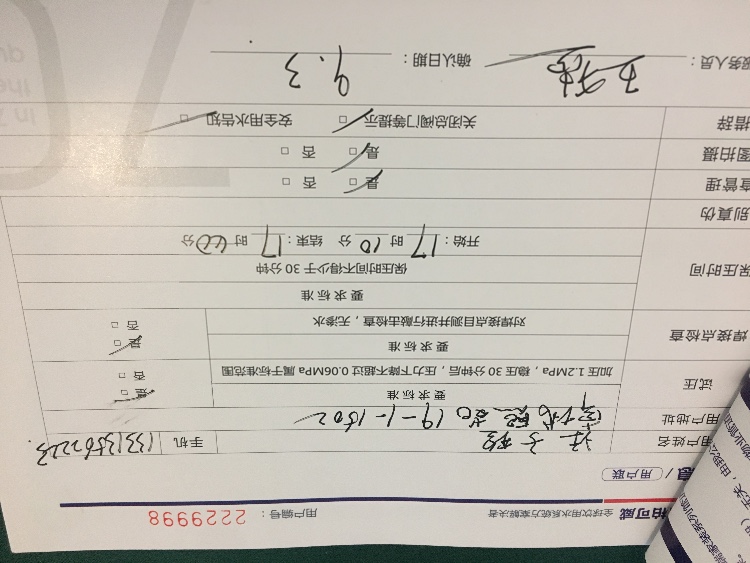 柏可威 全球饮用水系统方案解决者 用户编号：2229998
息 / 用户联
用户姓名 手机
用户地址 19-1-1502
试压 要求标准 是 □
加压1.2MPa，稳压30分钟后，压力下降不超过0.06MPa 属于标准范围 否 □
焊接点检查 要求标准 是 □
对焊接点目测并进行敲击检查，无渗水 否 □
保压时间 要求标准
保压时间不得少于30分钟
开始：17时10分 结束：17时40分
别真伪
查管理 是 □ 否 □
图拍摄 是 □ 否 □
措辞 关闭总阀门等提示 □ 安全用水告知 □
服务人员： 确认日期：9.3